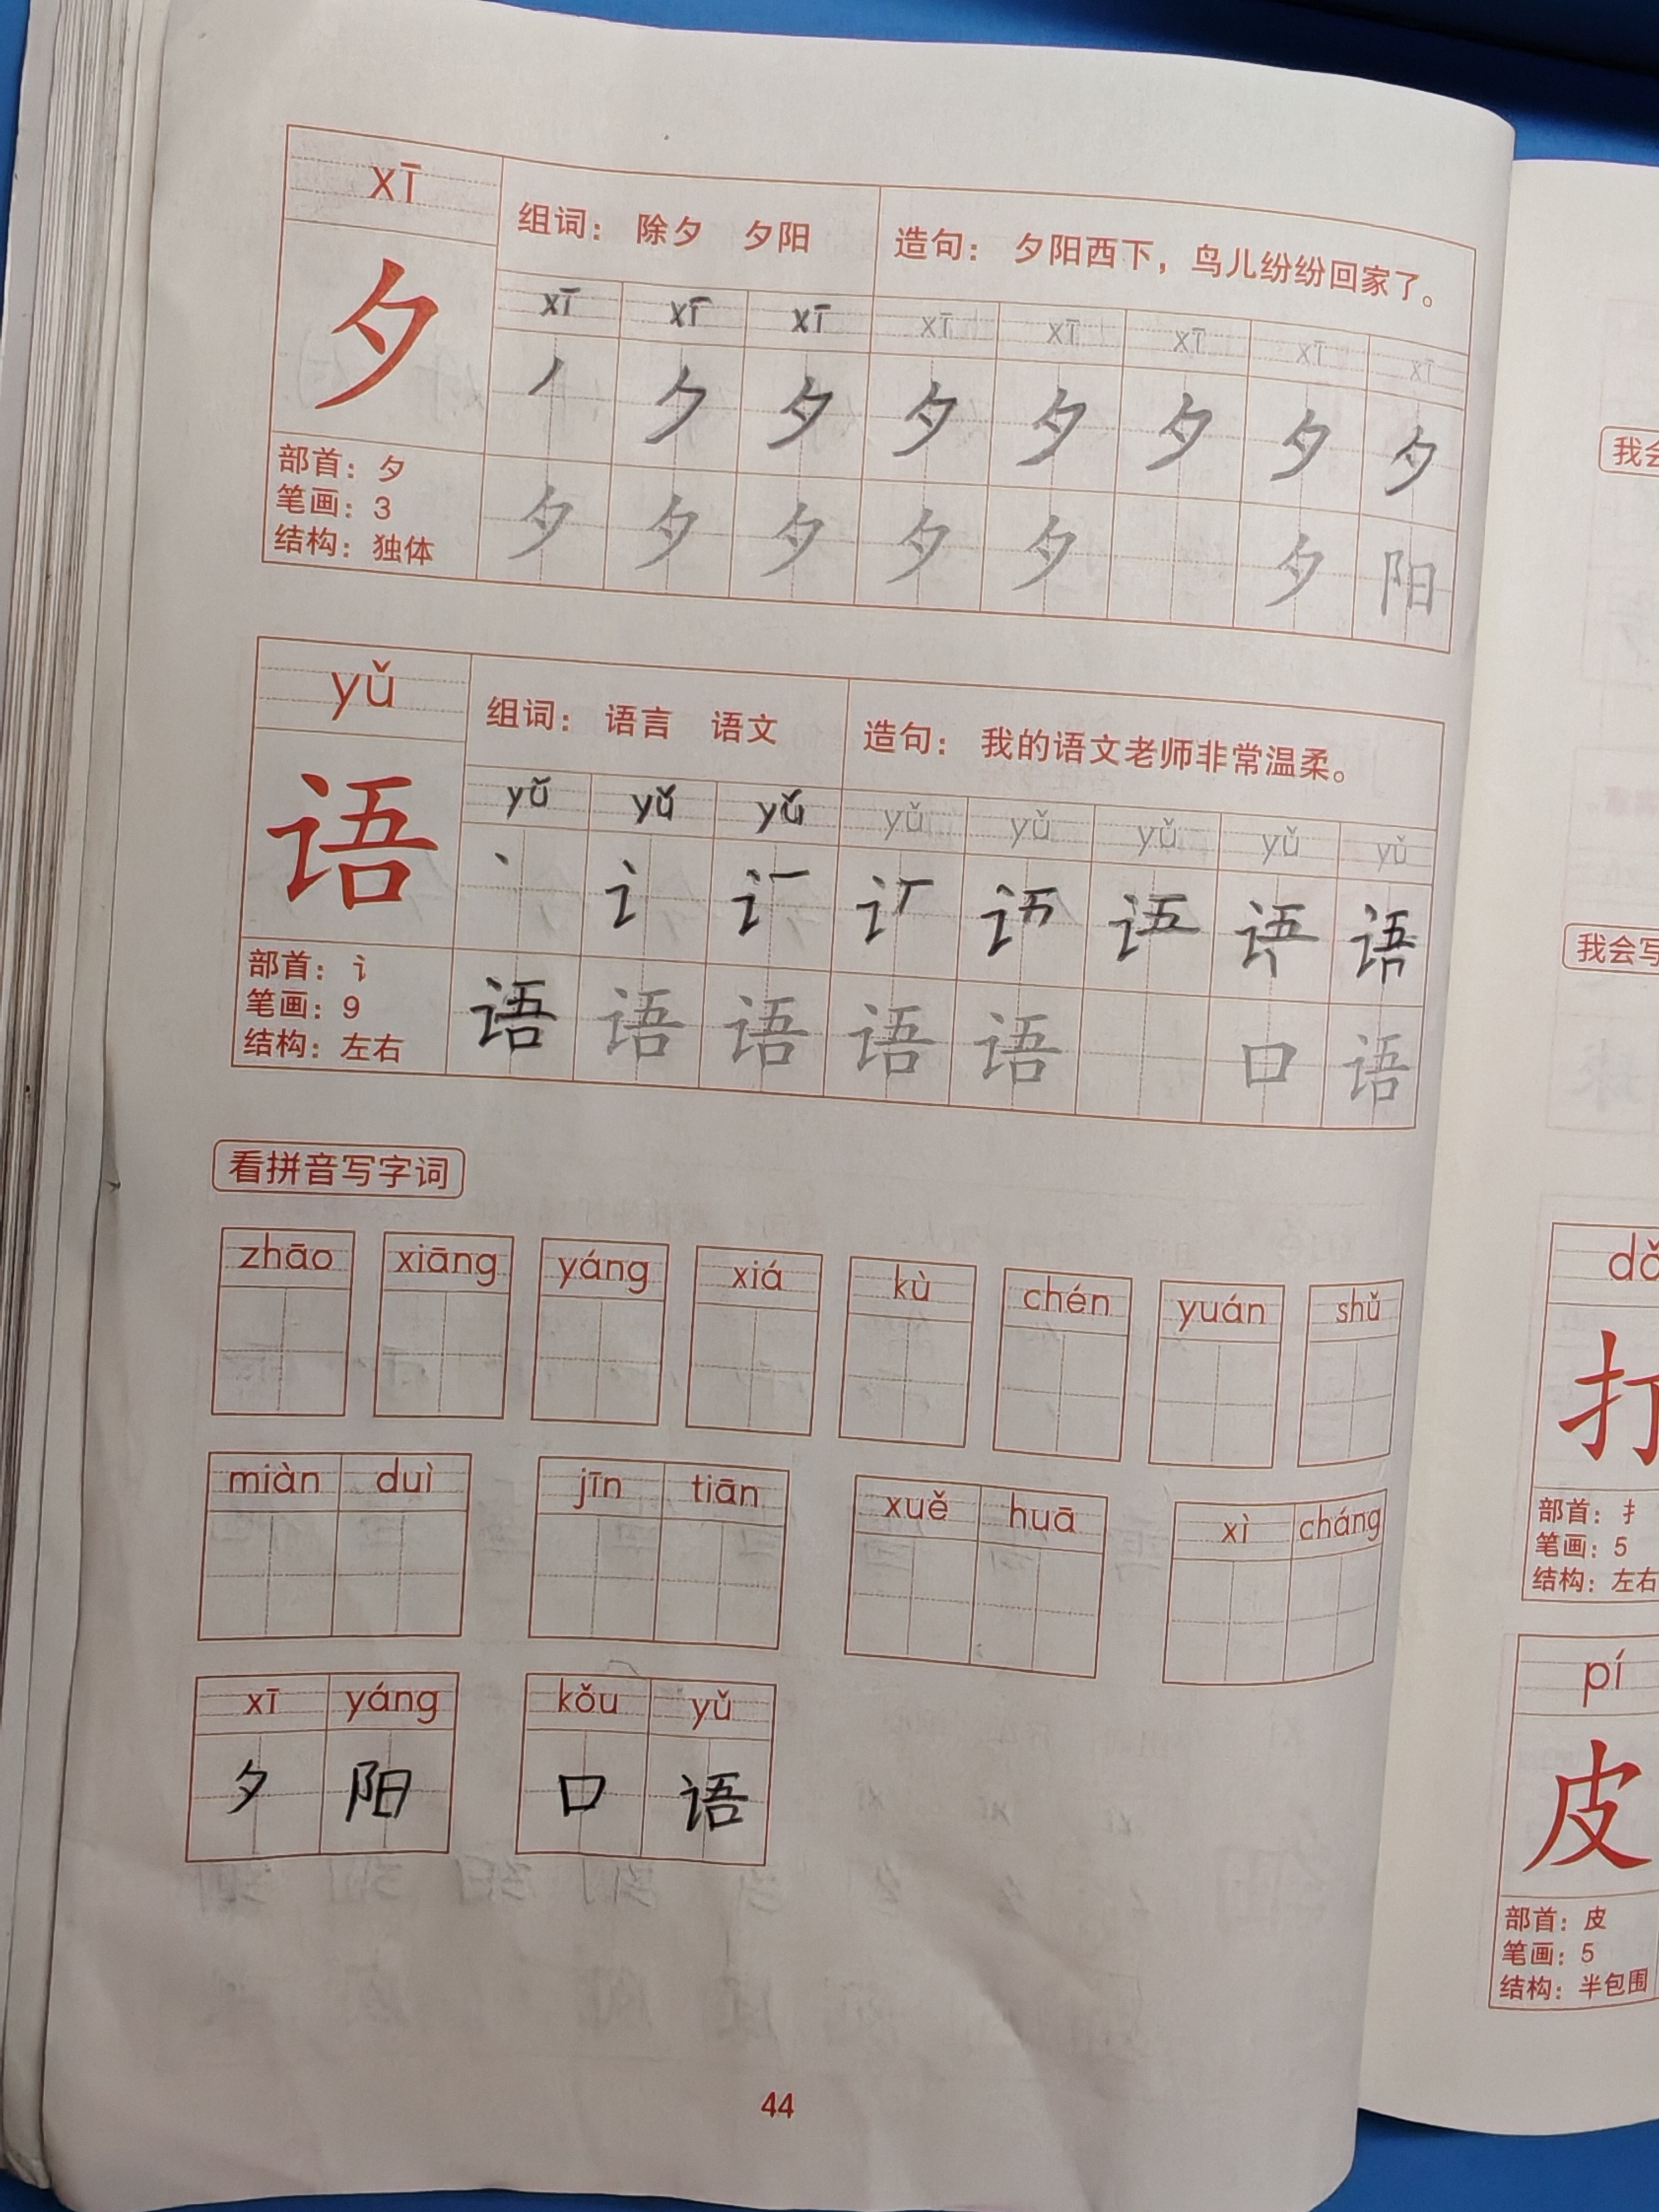 xī
组词： 除夕 夕阳
造句： 夕阳西下，鸟儿纷纷回家了。
夕
xī xī xī xī xī xī xī xī
丿 ク 夕 夕 夕 夕 夕 夕
部首：夕
笔画：3
结构：独体
夕 夕 夕 夕 夕 夕 阳
yǔ
组词： 语言 语文
造句： 我的语文老师非常温柔。
语
yǔ yǔ yǔ yǔ yǔ yǔ yǔ yǔ
丶 讠
部首：讠
笔画：9
结构：左右
语 语 语 语 语 口 语
看拼音写字词
zhāo xiāng yáng xiá kù chén yuán shǔ
miàn duì jīn tiān xuě huā xì cháng
xī yáng kǒu yǔ
夕 阳 口 语
44
我会
我会写
打
部首：扌
笔画：5
结构：左右
pí
皮
部首：皮
笔画：5
结构：半包围